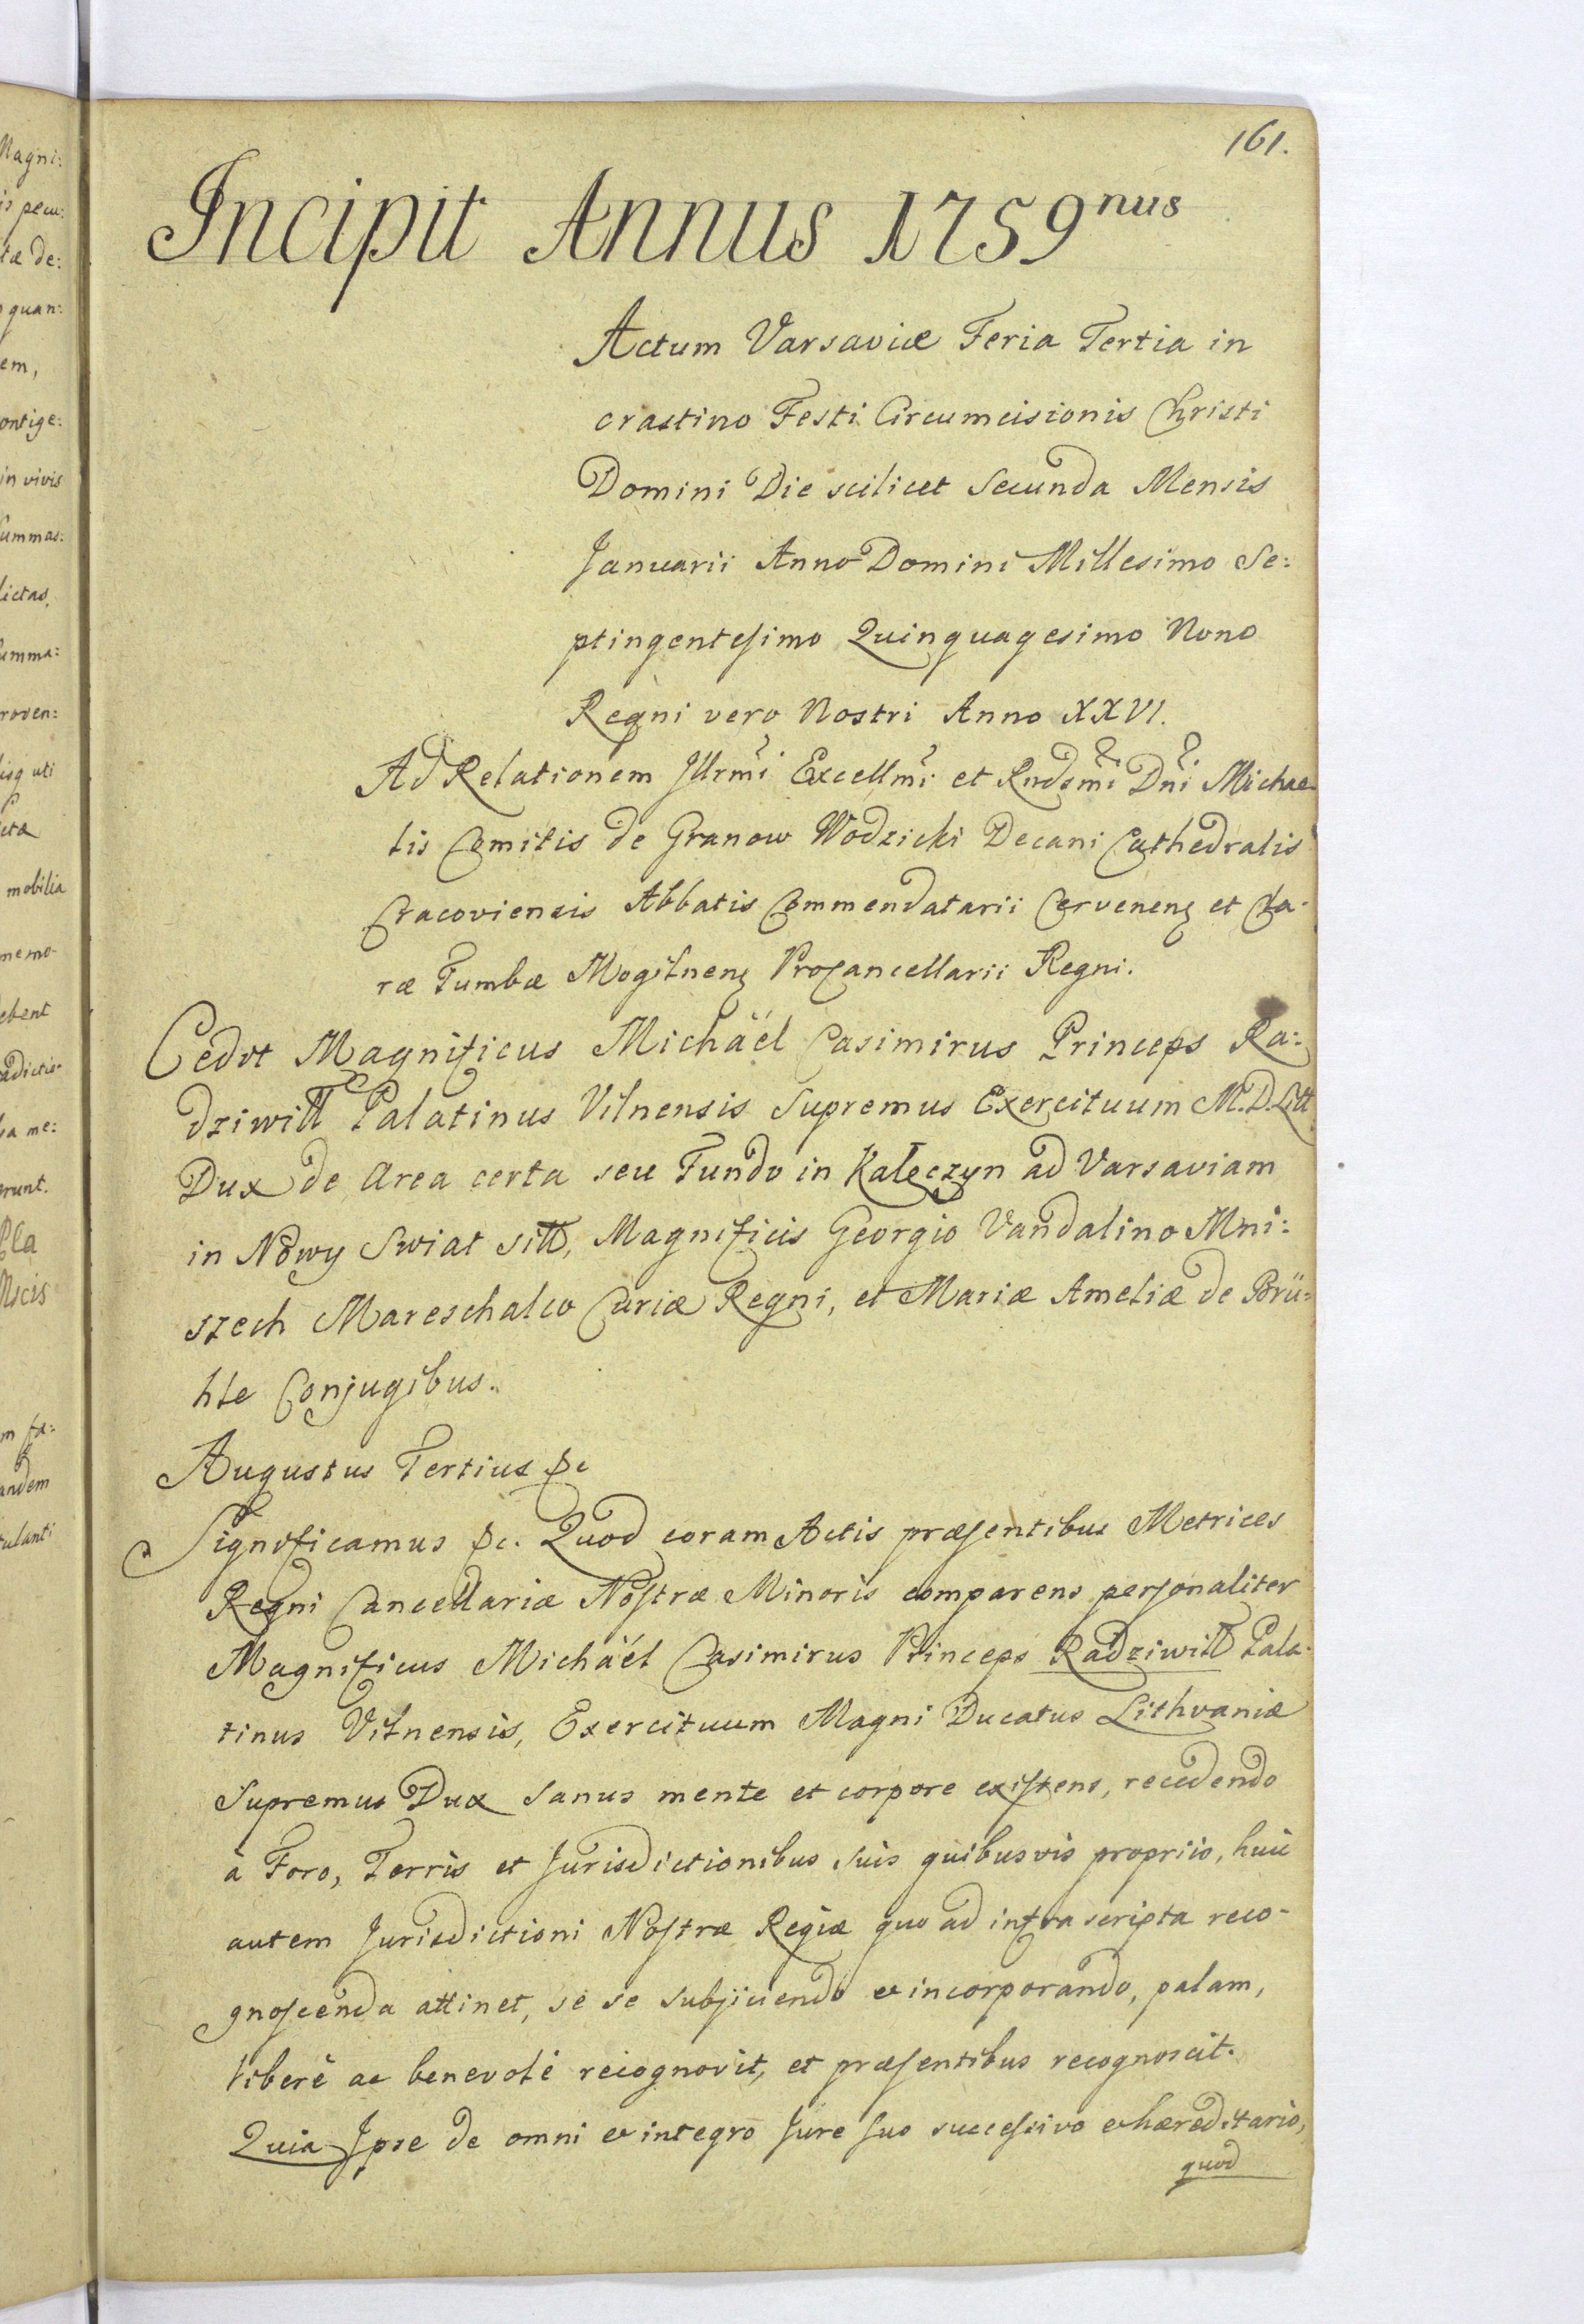 161.
Incipit Annus 1759nus
Actum Varsaviæ Feria Tertia in
crastino Festi Circumcisionis Christi
Domini Die scilicet Secunda Mensis
Januarii Anno Domini Millesimo Se:
ptingentesimo Quinquagesimo Nono
Regni vero Nostri Anno XXVI.
Ad Relationem Illrmi Excellmi et Rndsmi Dni Michae
lis Comitis de Granow Wodzicki Decani Cathedralis
Cracoviensis Abbatis Commendatarii Cervenen et Cla-
ræ Tumbæ Mogilnen Procancellarii Regni.
Cedit Magnificus Michäél Casimirus Princeps Ra:
dziwill Palatinus Vilnensis Supremus Exercituum M.D.Litt
Dux de Area certa seu Fundo in Kałęczyn ad Varsaviam
in Nowy Swiat sitt, Magnificis Georgio Vandalino Mni:
szech Mareschalco Curiæ Regni, et Mariæ Ameliæ de Brü:
hle Conjugibus.
Augustus Tertius &c
Significamus &c. Quod coram Actis præsentibus Metrices
Regni Cancellariæ Nostræ Minoris comparens personaliter
Magnificus Michäél Casimirus Princeps Radziwill Pala-
tinus Vilnensis, Exercituum Magni Ducatus Lithvaniæ
Supremus Dux Sanus mente et corpore existens, recedendo
à Foro, Terris et Jurisdictionibus Suis quibusvis propriis, huic
autem Jurisdictioni Nostræ Regiæ quo ad infra scripta reco-
gnoscenda attinet, se se subjiciendo et incorporando, palam,
liberè ac benevolè recognovit, et præsentibus recognoscit.
Quia Ipse de omni et integro Jure suo successivo et hæreditario,
quod